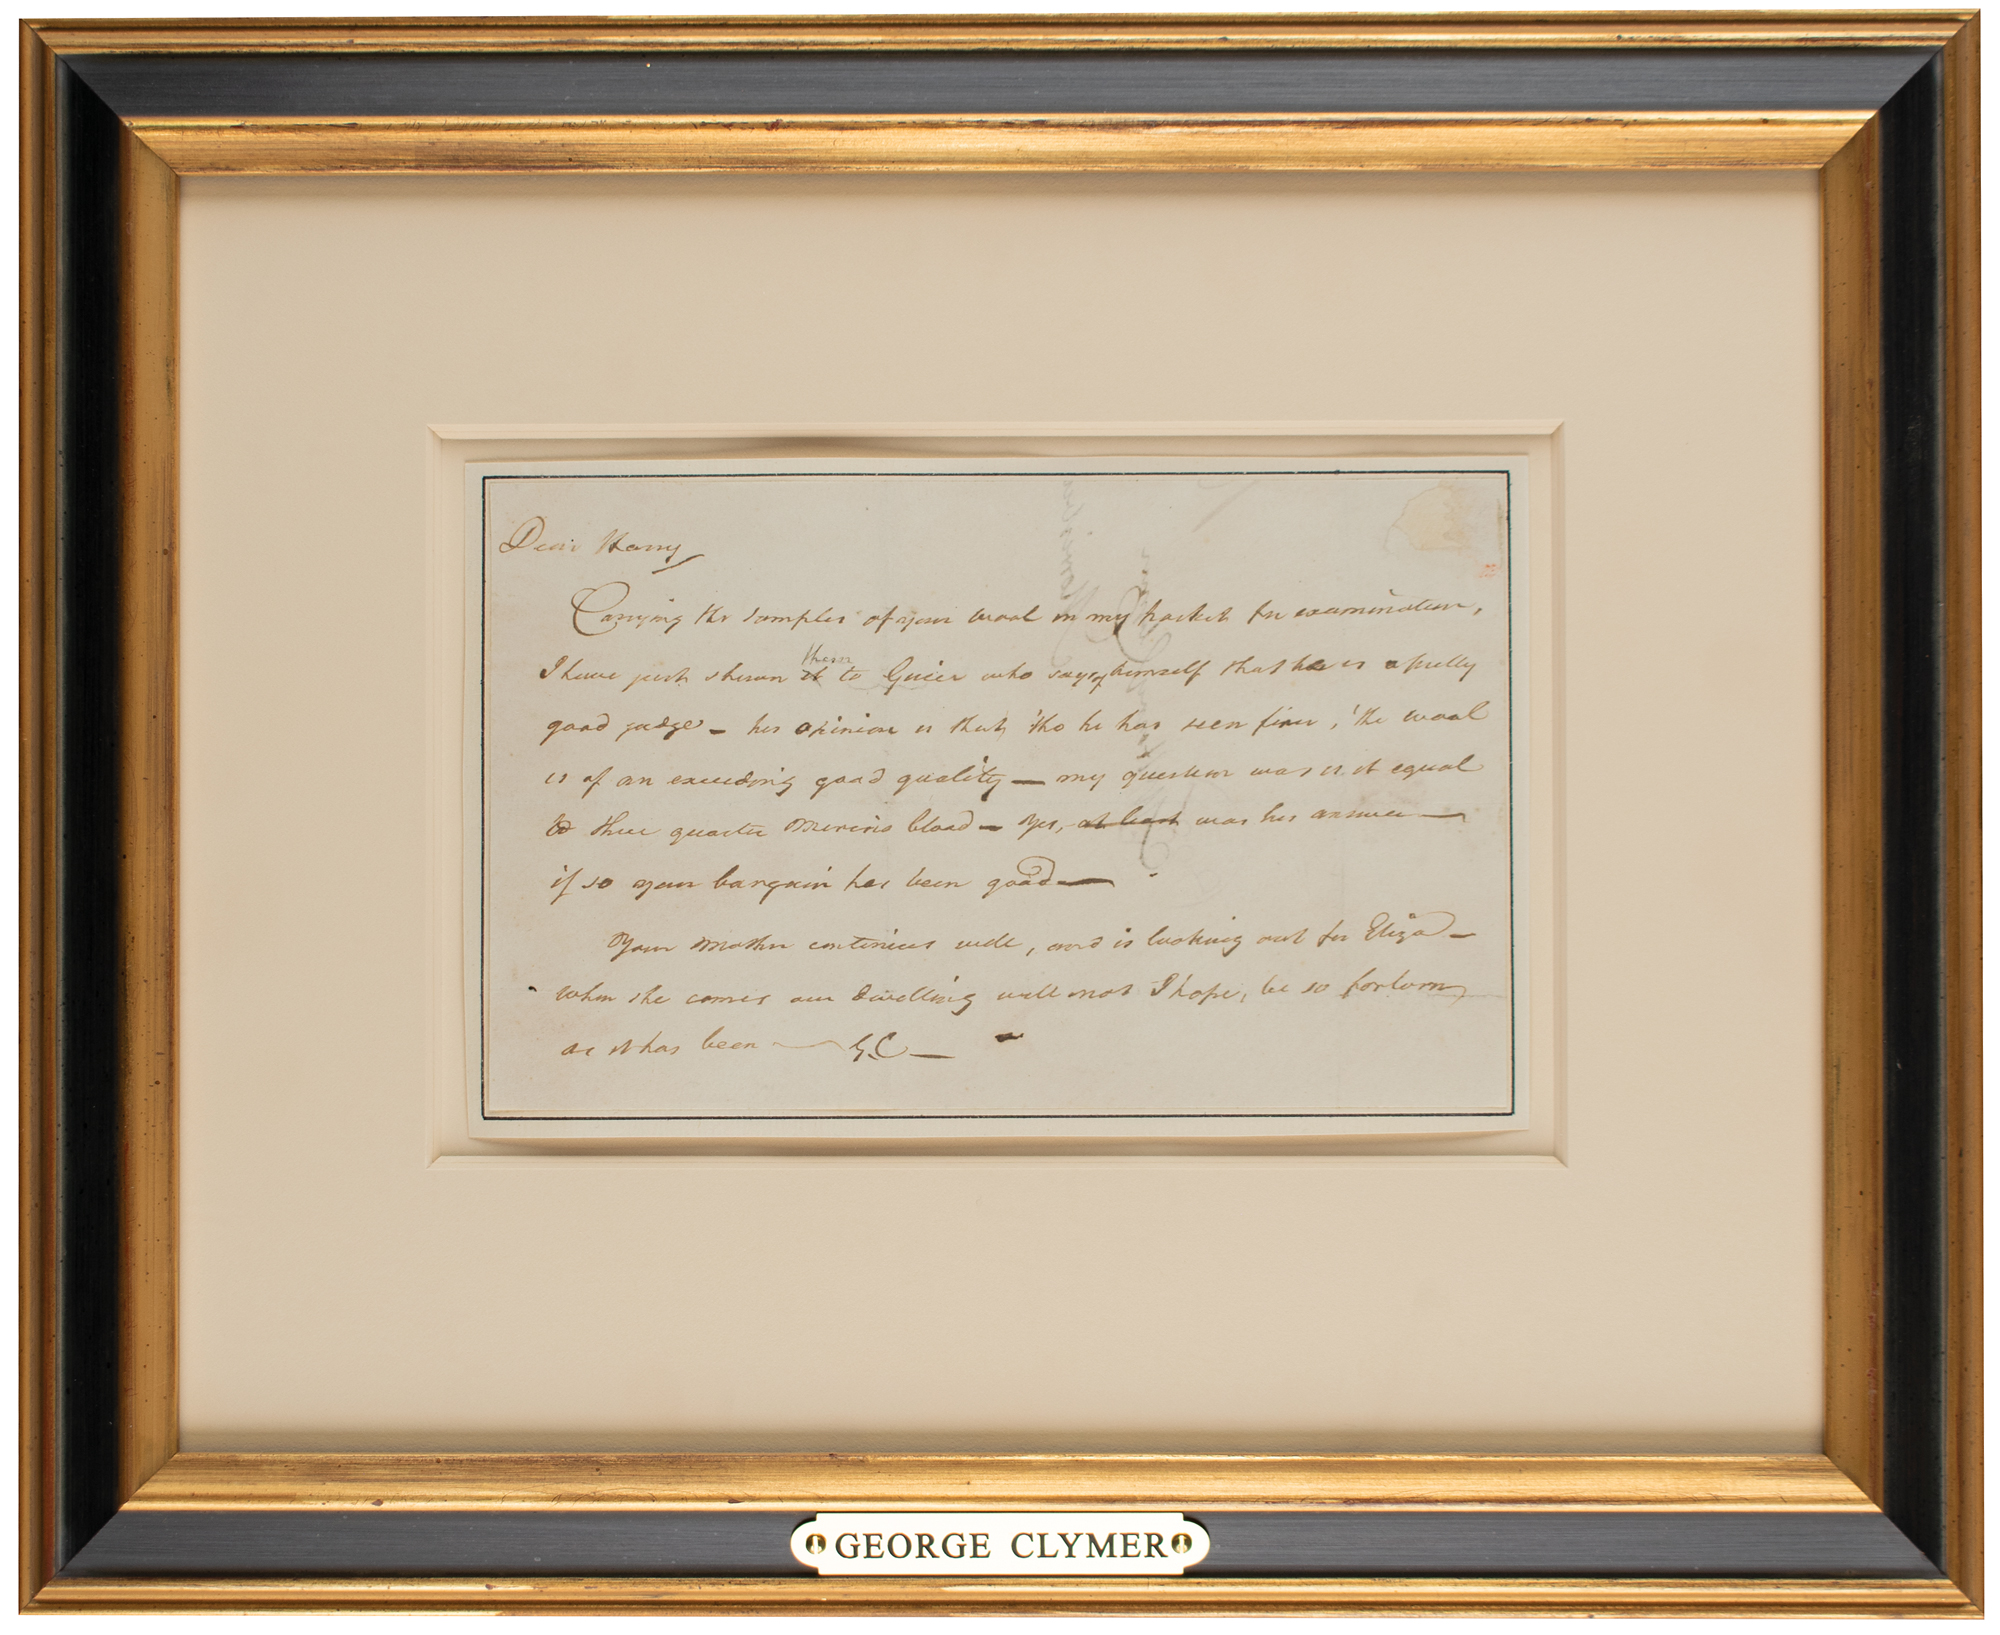 Dear Harry
Carrying the samples of your wool in my pocket for examination,
them
I have just shewn it to Guier who says of himself that he is a pretty
good judge – his opinion is that 'tho he has seen finer, 'the wool
is of an exceeding good quality – my question was is it equal
to three quarter Merino blood – Yes, at least was his answer –
if so your bargain has been good –
Your Mother continues well, and is looking out for Eliza –
when she comes our dwelling will not I hope, be so forlorn,
as it has been — G.C –
GEORGE CLYMER